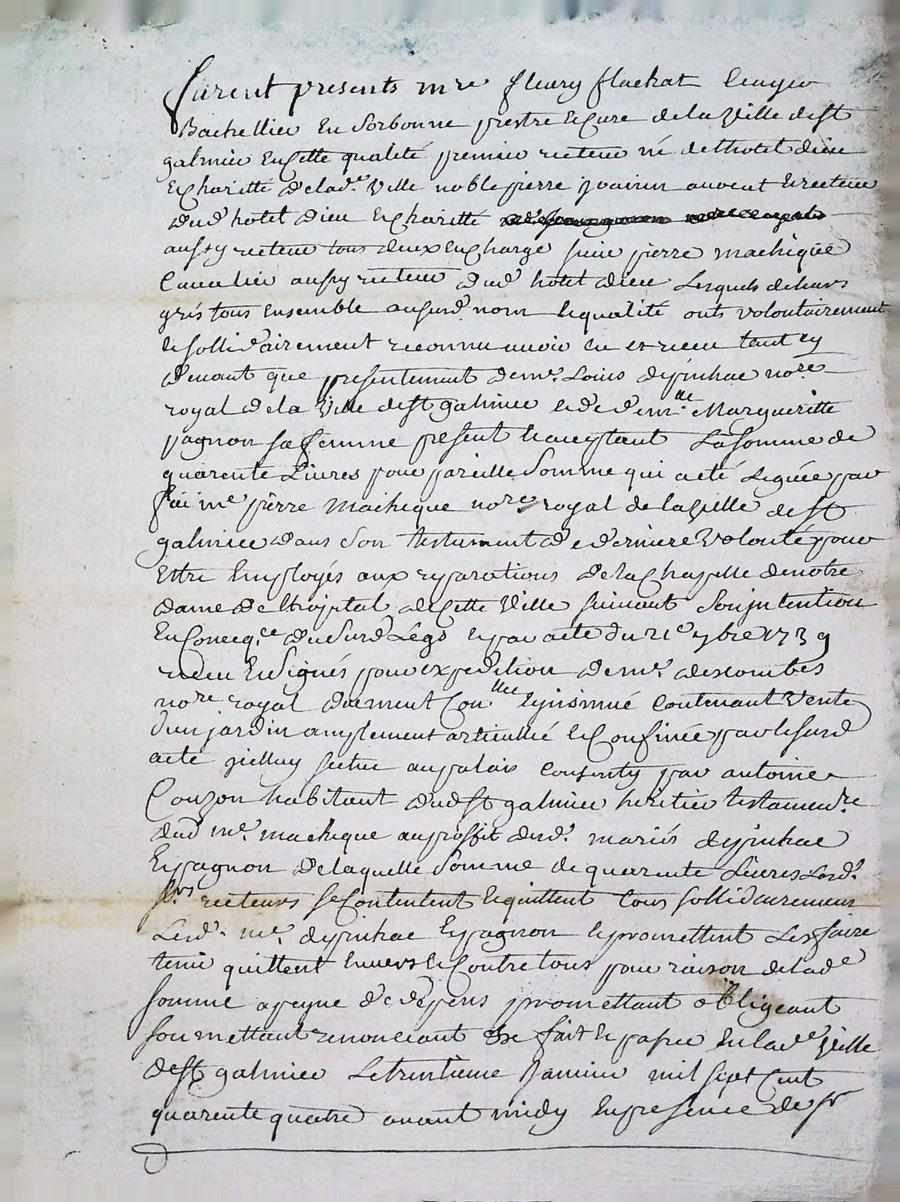 furent presents mre fleury flachat Ecuyer
Bachellier En Sorbonne prestre Ecure de la Ville de st
galmier En cette qualité premier recteur né de lhotel dieu
Echaritté de lad.e Ville noble pierre avocat Erecteur
dud hotel dieu Echaritté
aussy recteur tous deux En Charge sieur pierre machique
Cavalier aussy recteur dud hotel dieu Lesquels de leurs
grés tous Ensemble ausurd. nom Equalité onts volontairement
Esollidairement reconnu avoir Eu et receu tant cy
devant que presentement de me. Louis despinhac nore
royal de la Ville de st galmier et de dem.lle Margueritte
pagnon sa femme present Eaceptant La somme de
quarente Livres pour pareille Somme qui a eté Leguée par
feu me pierre Machique nore royal de la ville de st
galmier dans Son testament de derniere Volonté pour
Estre Employés aux reparations de la Chapelle de notre
dame de L'hopital de Cette Ville suivant Son jntention
En Conceq.ce du surd Légs Epar acte du 21e 7bre 1739
receu En Signés pour expedition de me. descombes
nore royal duement Con.llée Ejnsinué Contenant Vente
d'un jardin amplement articullé EConfinée par le surd
acte jcelluy scitué au palais Consenty par antoine
Couzon habitant dud st galmier heritier testamen.re
dud me. machique au proffit desd. mariés despinhac
Epagnon de laquelle Somme de quarente Livres Lesd.
srs. recteurs se Contentent Equittent tous sollidairement
Lesd. me. despinhac Epagnon Epromettent Les faire
tenir quittent Envers EContre tous pour raison de lad.e
somme a peyne de depens promettant obligeant
soumettant renoncant &c fait Epassé En lad.e Ville
de st galmier Le trentieme Janvier mil sept Cent
quarente quatre avant midy En presence de sr